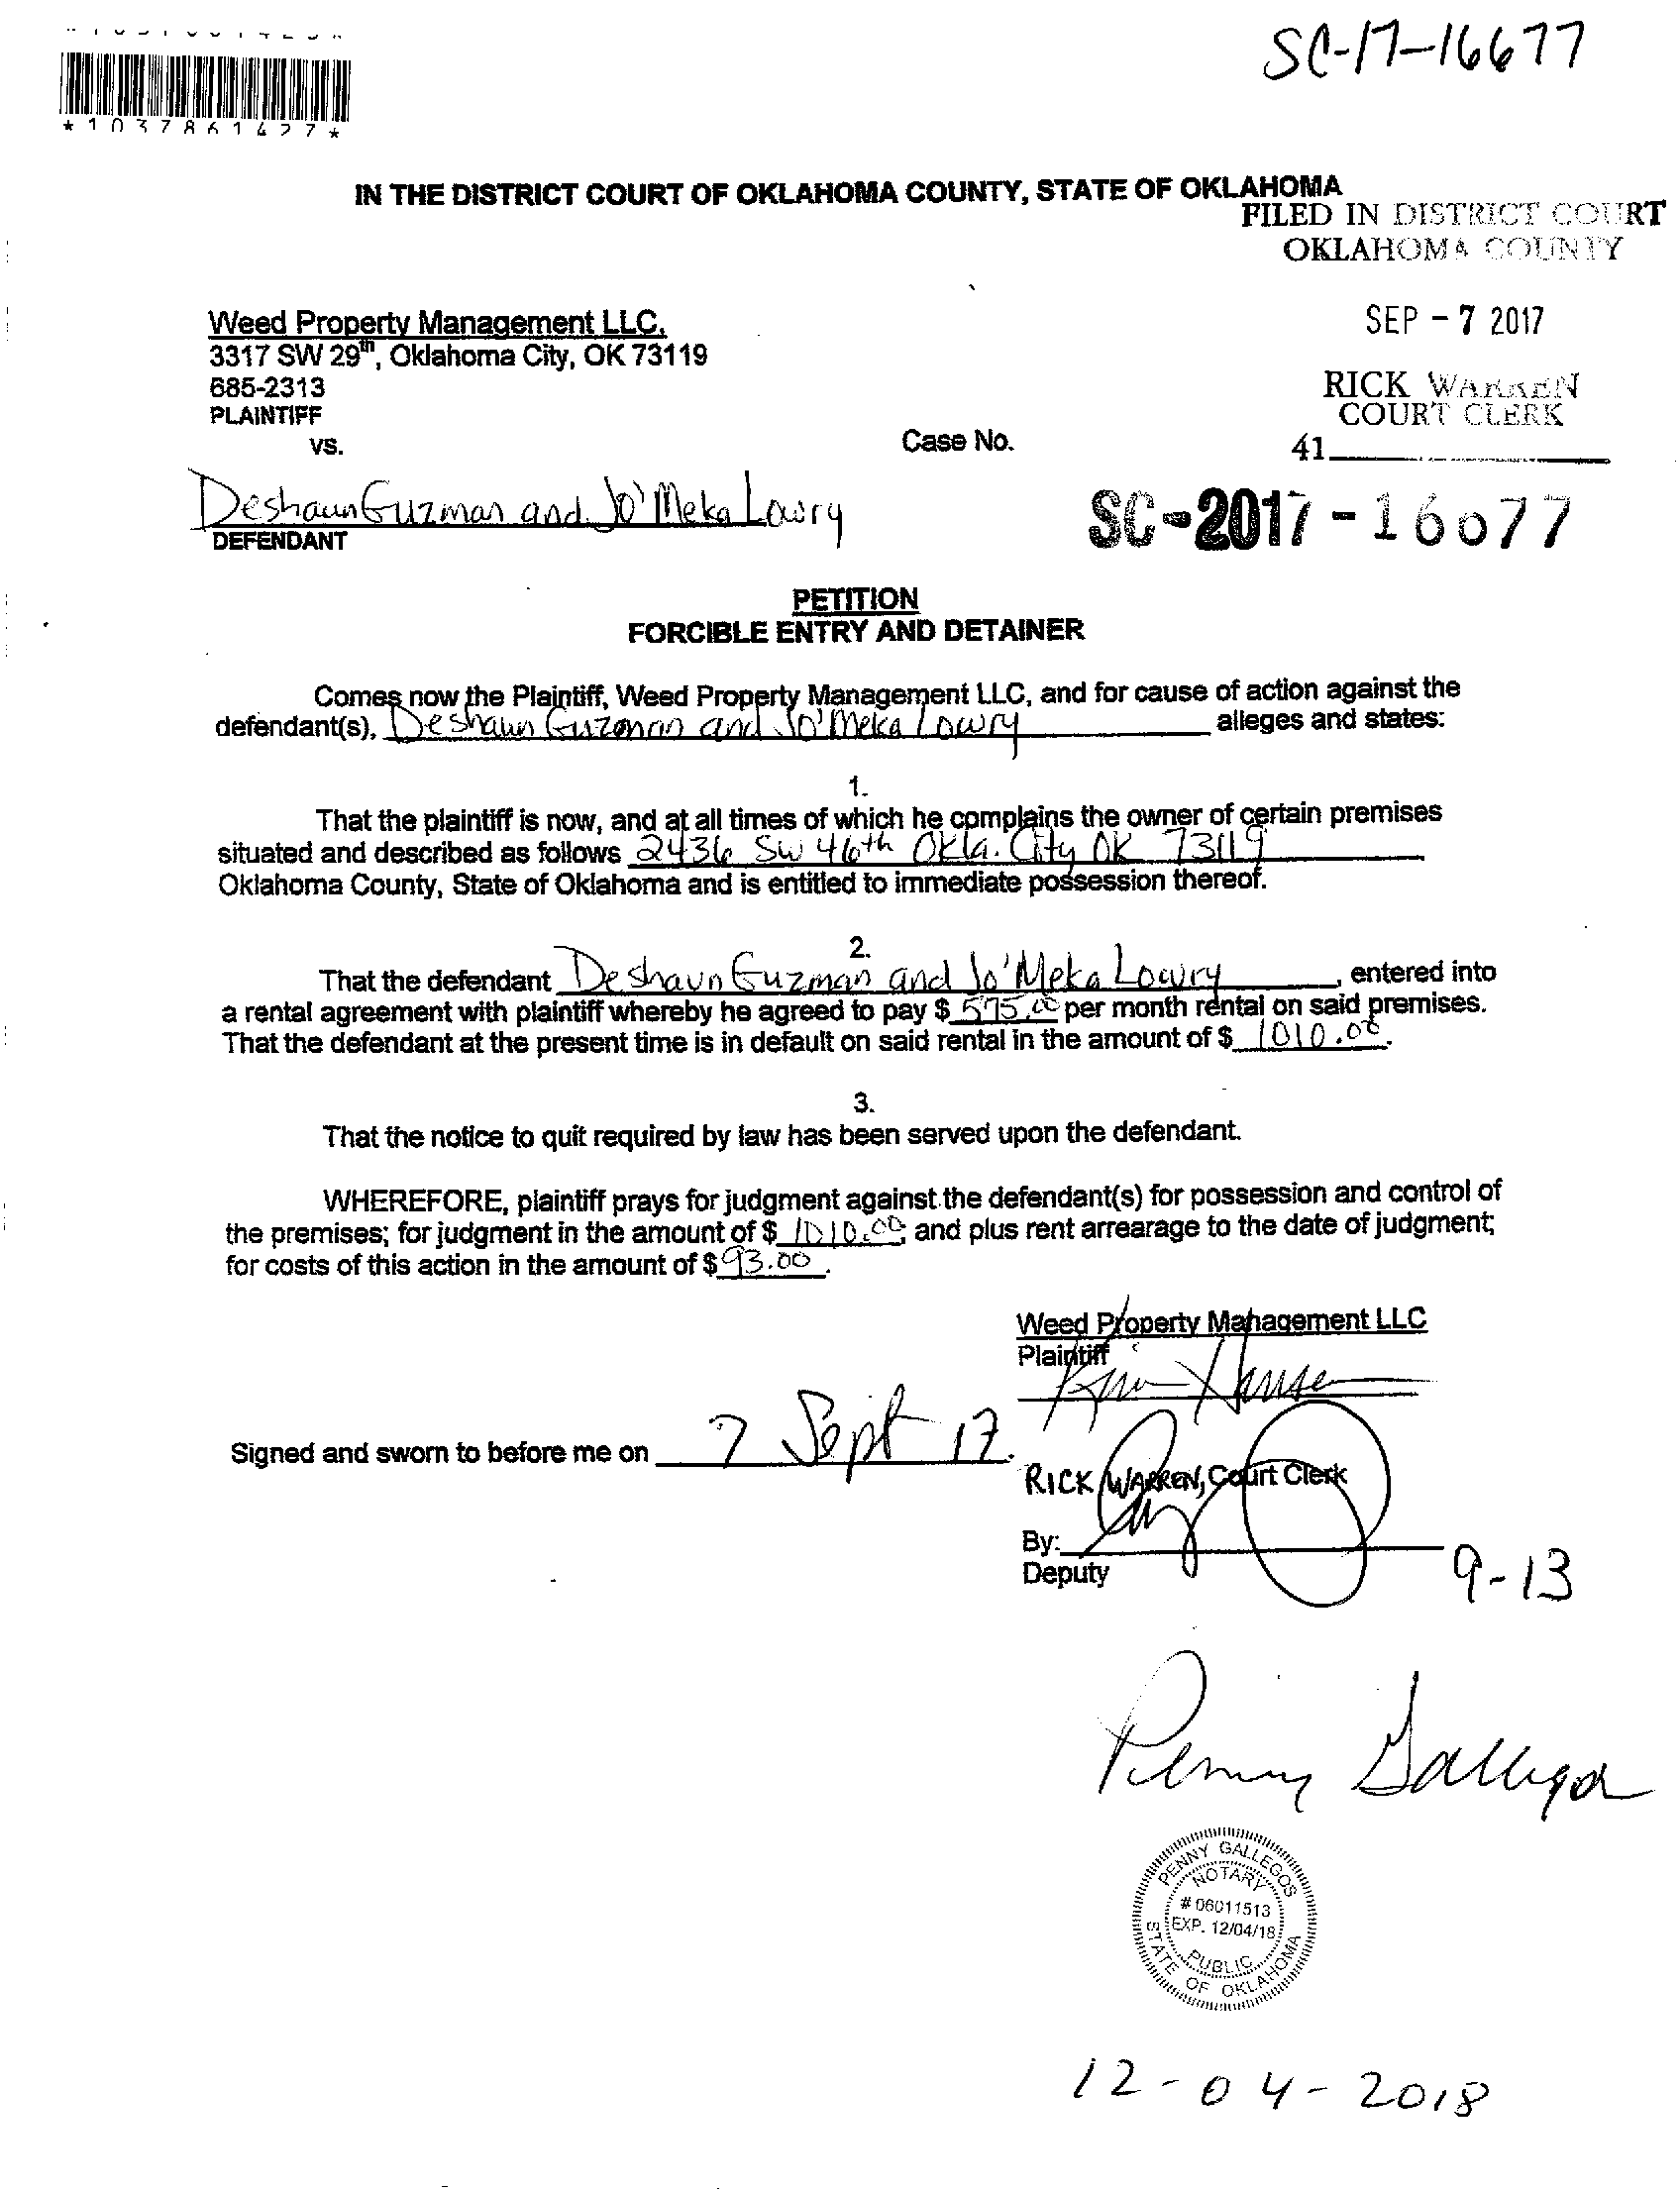 SC-17-16677
*1037861427*
IN THE DISTRICT COURT OF OKLAHOMA COUNTY, STATE OF OKLAHOMA
FILED IN DISTRICT COURT
OKLAHOMA COUNTY
SEP - 7 2017
RICK WARREN
COURT CLERK
41
Weed Property Management LLC,
3317 SW 29th, Oklahoma City, OK 73119
685-2313
PLAINTIFF
VS.
Case No.
Deshaun Guzman and Jo'Meka Lowry
DEFENDANT
SC-2017-16677
PETITION
FORCIBLE ENTRY AND DETAINER
Comes now the Plaintiff, Weed Property Management LLC, and for cause of action against the
defendant(s), Deshaun Guzman and Jo'Meka Lowry alleges and states:
1.
That the plaintiff is now, and at all times of which he complains the owner of certain premises
situated and described as follows 2436 SW 46th Okla. City OK 73119
Oklahoma County, State of Oklahoma and is entitled to immediate possession thereof.
2.
That the defendant Deshaun Guzman and Jo'Meka Lowry, entered into
a rental agreement with plaintiff whereby he agreed to pay $ 575.00 per month rental on said premises.
That the defendant at the present time is in default on said rental in the amount of $ 1010.00.
3.
That the notice to quit required by law has been served upon the defendant.
WHEREFORE, plaintiff prays for judgment against the defendant(s) for possession and control of
the premises; for judgment in the amount of $ 1010.00; and plus rent arrearage to the date of judgment;
for costs of this action in the amount of $ 93.00.
Weed Property Management LLC
Plaintiff
Signed and sworn to before me on 7 Sept 17.
RICK WARREN, Court Clerk
By:
Deputy
9-13
Penny Gallegos
PENNY GALLEGOS
NOTARY
# 06011513
EXP. 12/04/18
PUBLIC
STATE OF OKLAHOMA
12-04-2018